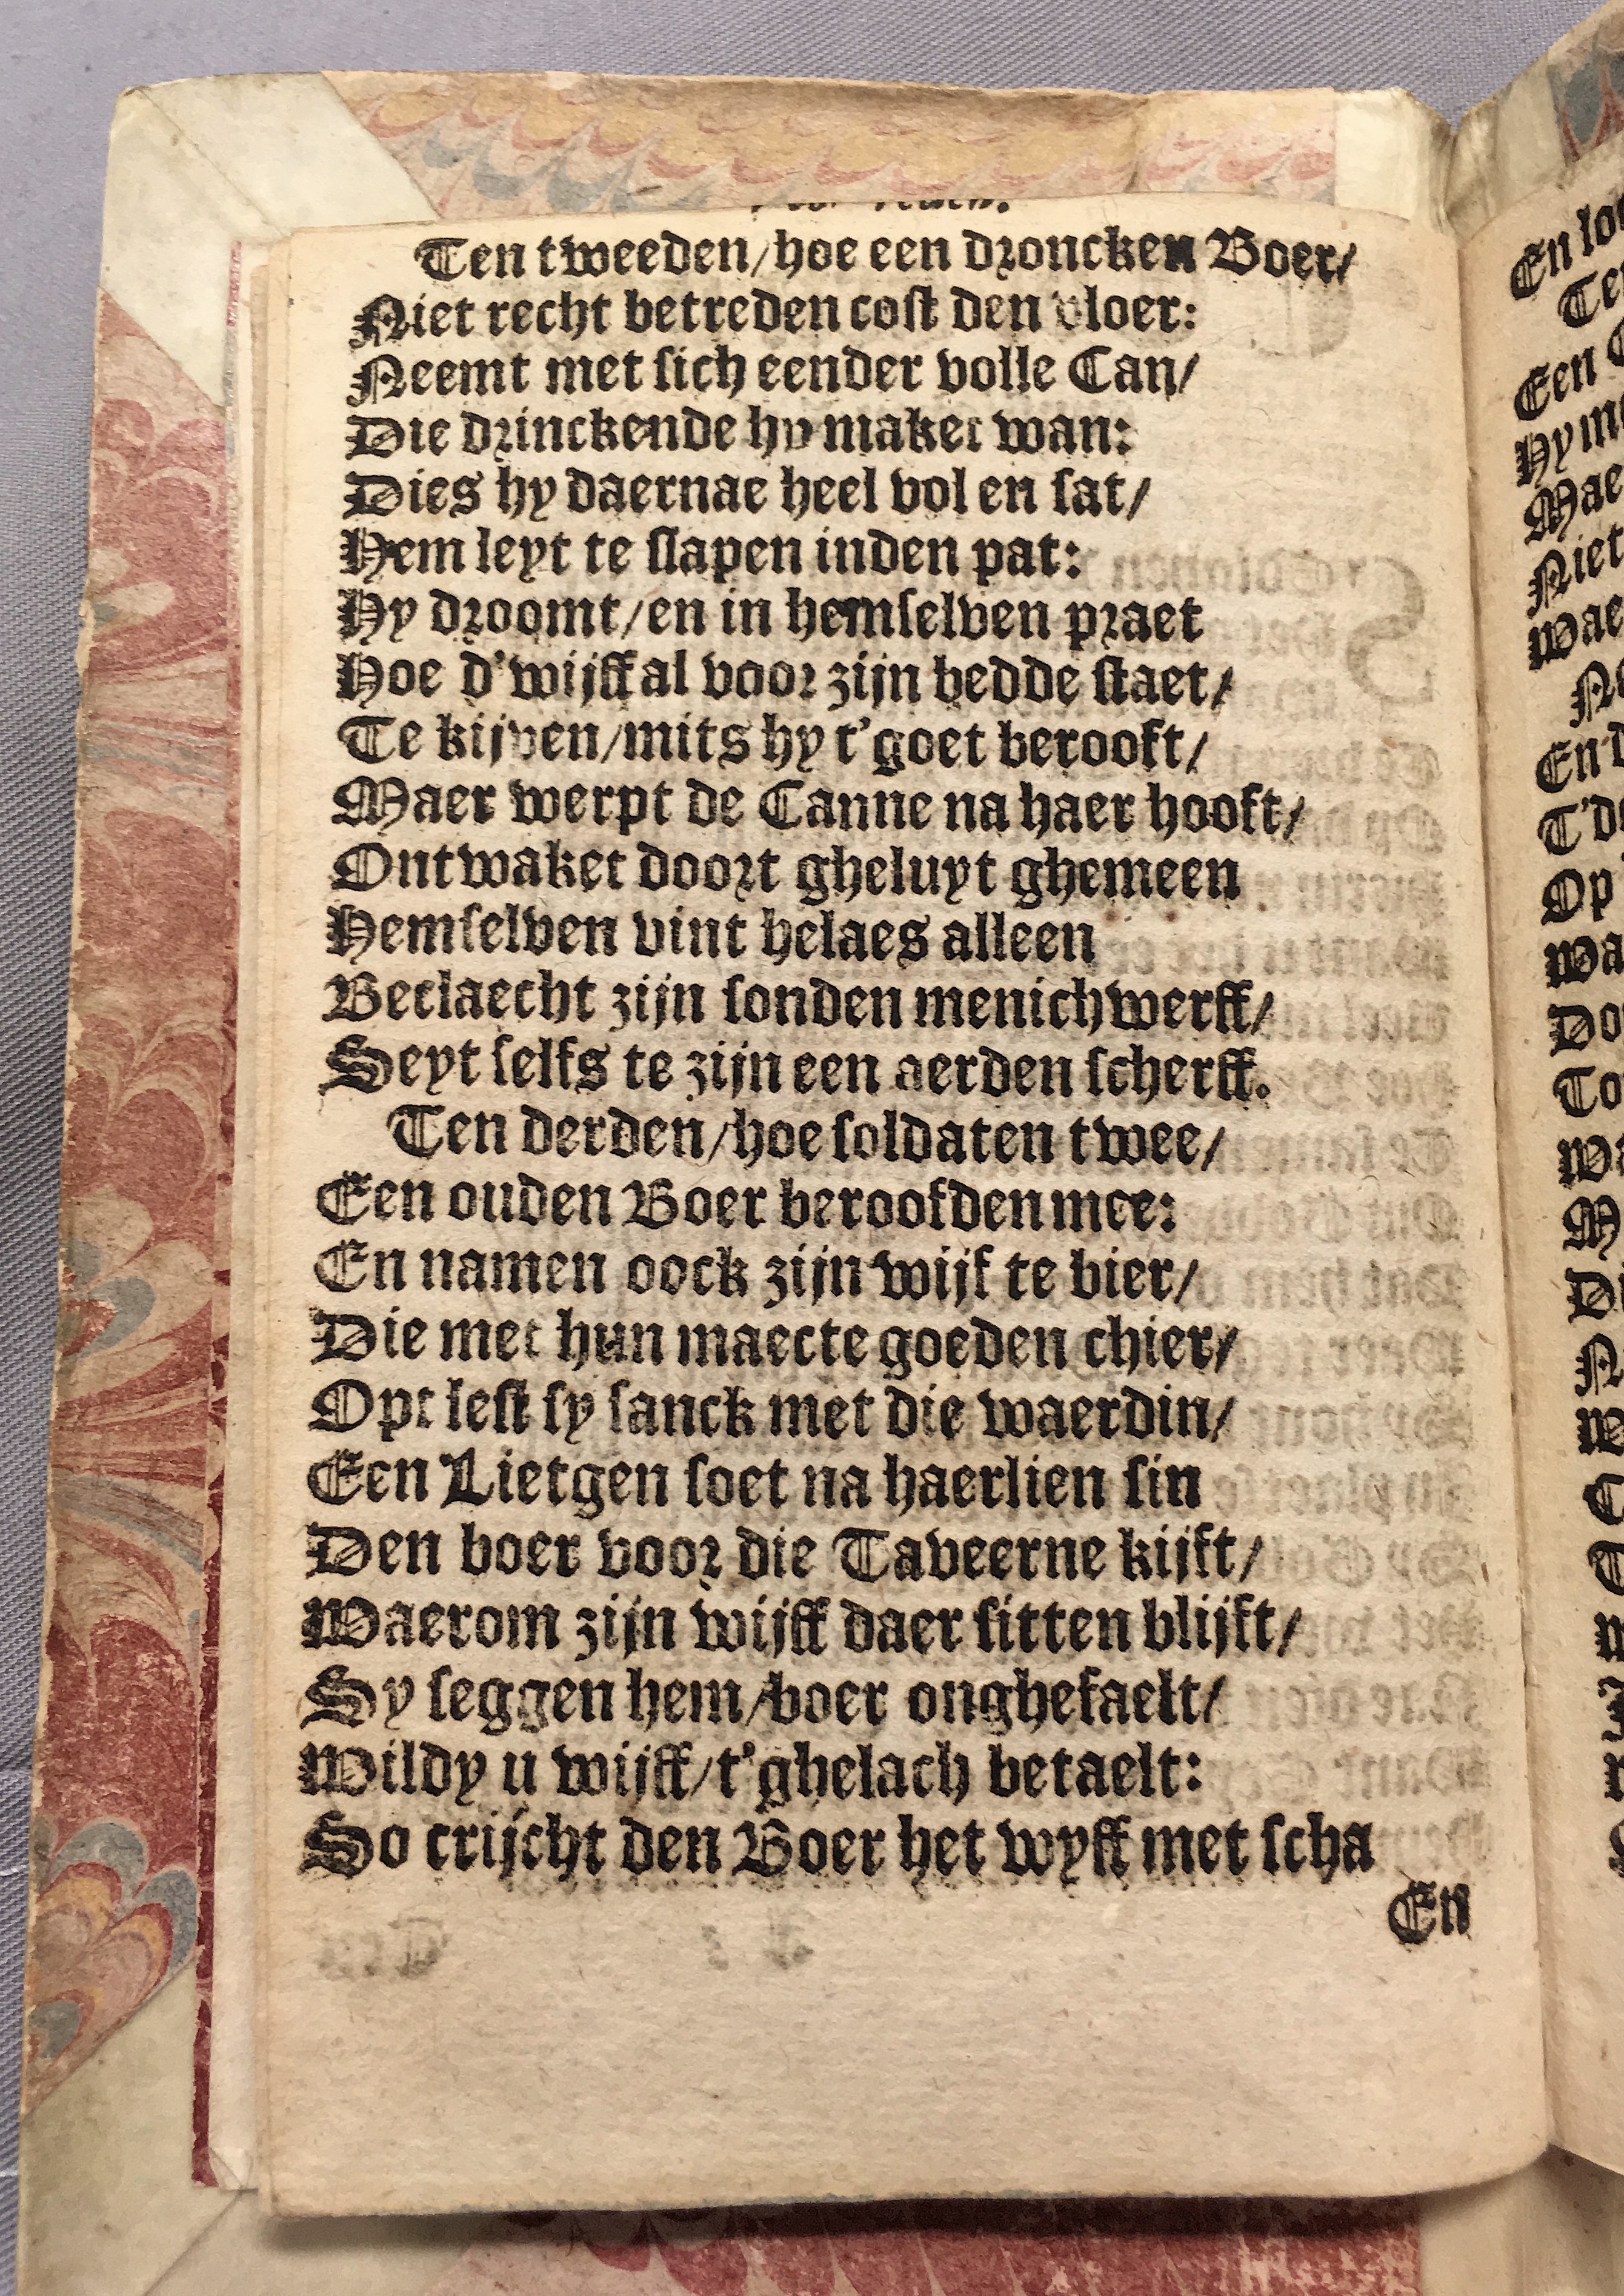 Ten tweeden/hoe een droncken Boer/
Niet recht betreden cost den vloer:
Neemt met sich eender volle Can/
Die drinckende hy maket wan:
Dies hy daernae heel vol en sat/
Hem leyt te slapen inden pat:
Hy droomt/en in hemselven praet
Hoe d'wijff al voor zijn bedde staet/
Te kijven/mits hy t'goet berooft/
Maer werpt de Canne na haer hooft/
Ontwaket doort gheluyt ghemeen
Hemselven vint helaes alleen
Beclaecht zijn sonden menichwerff/
Seyt selfs te zijn een aerden scherff.
Ten derden/hoe soldaten twee/
Een ouden Boer beroofden mee:
En namen oock zijn wijf te bier/
Die met hun maecte goeden chier/
Opt lest sy sanck met die waerdin/
Een Lietgen soet na haerlien sin
Den boer voor die Taveerne kijft/
Waerom zijn wijff daer sitten blijft/
Sy seggen hem/boer onghefaelt/
Wildy u wijff/t'ghelach betaelt:
So crijcht den Boer het wyff met scha
En